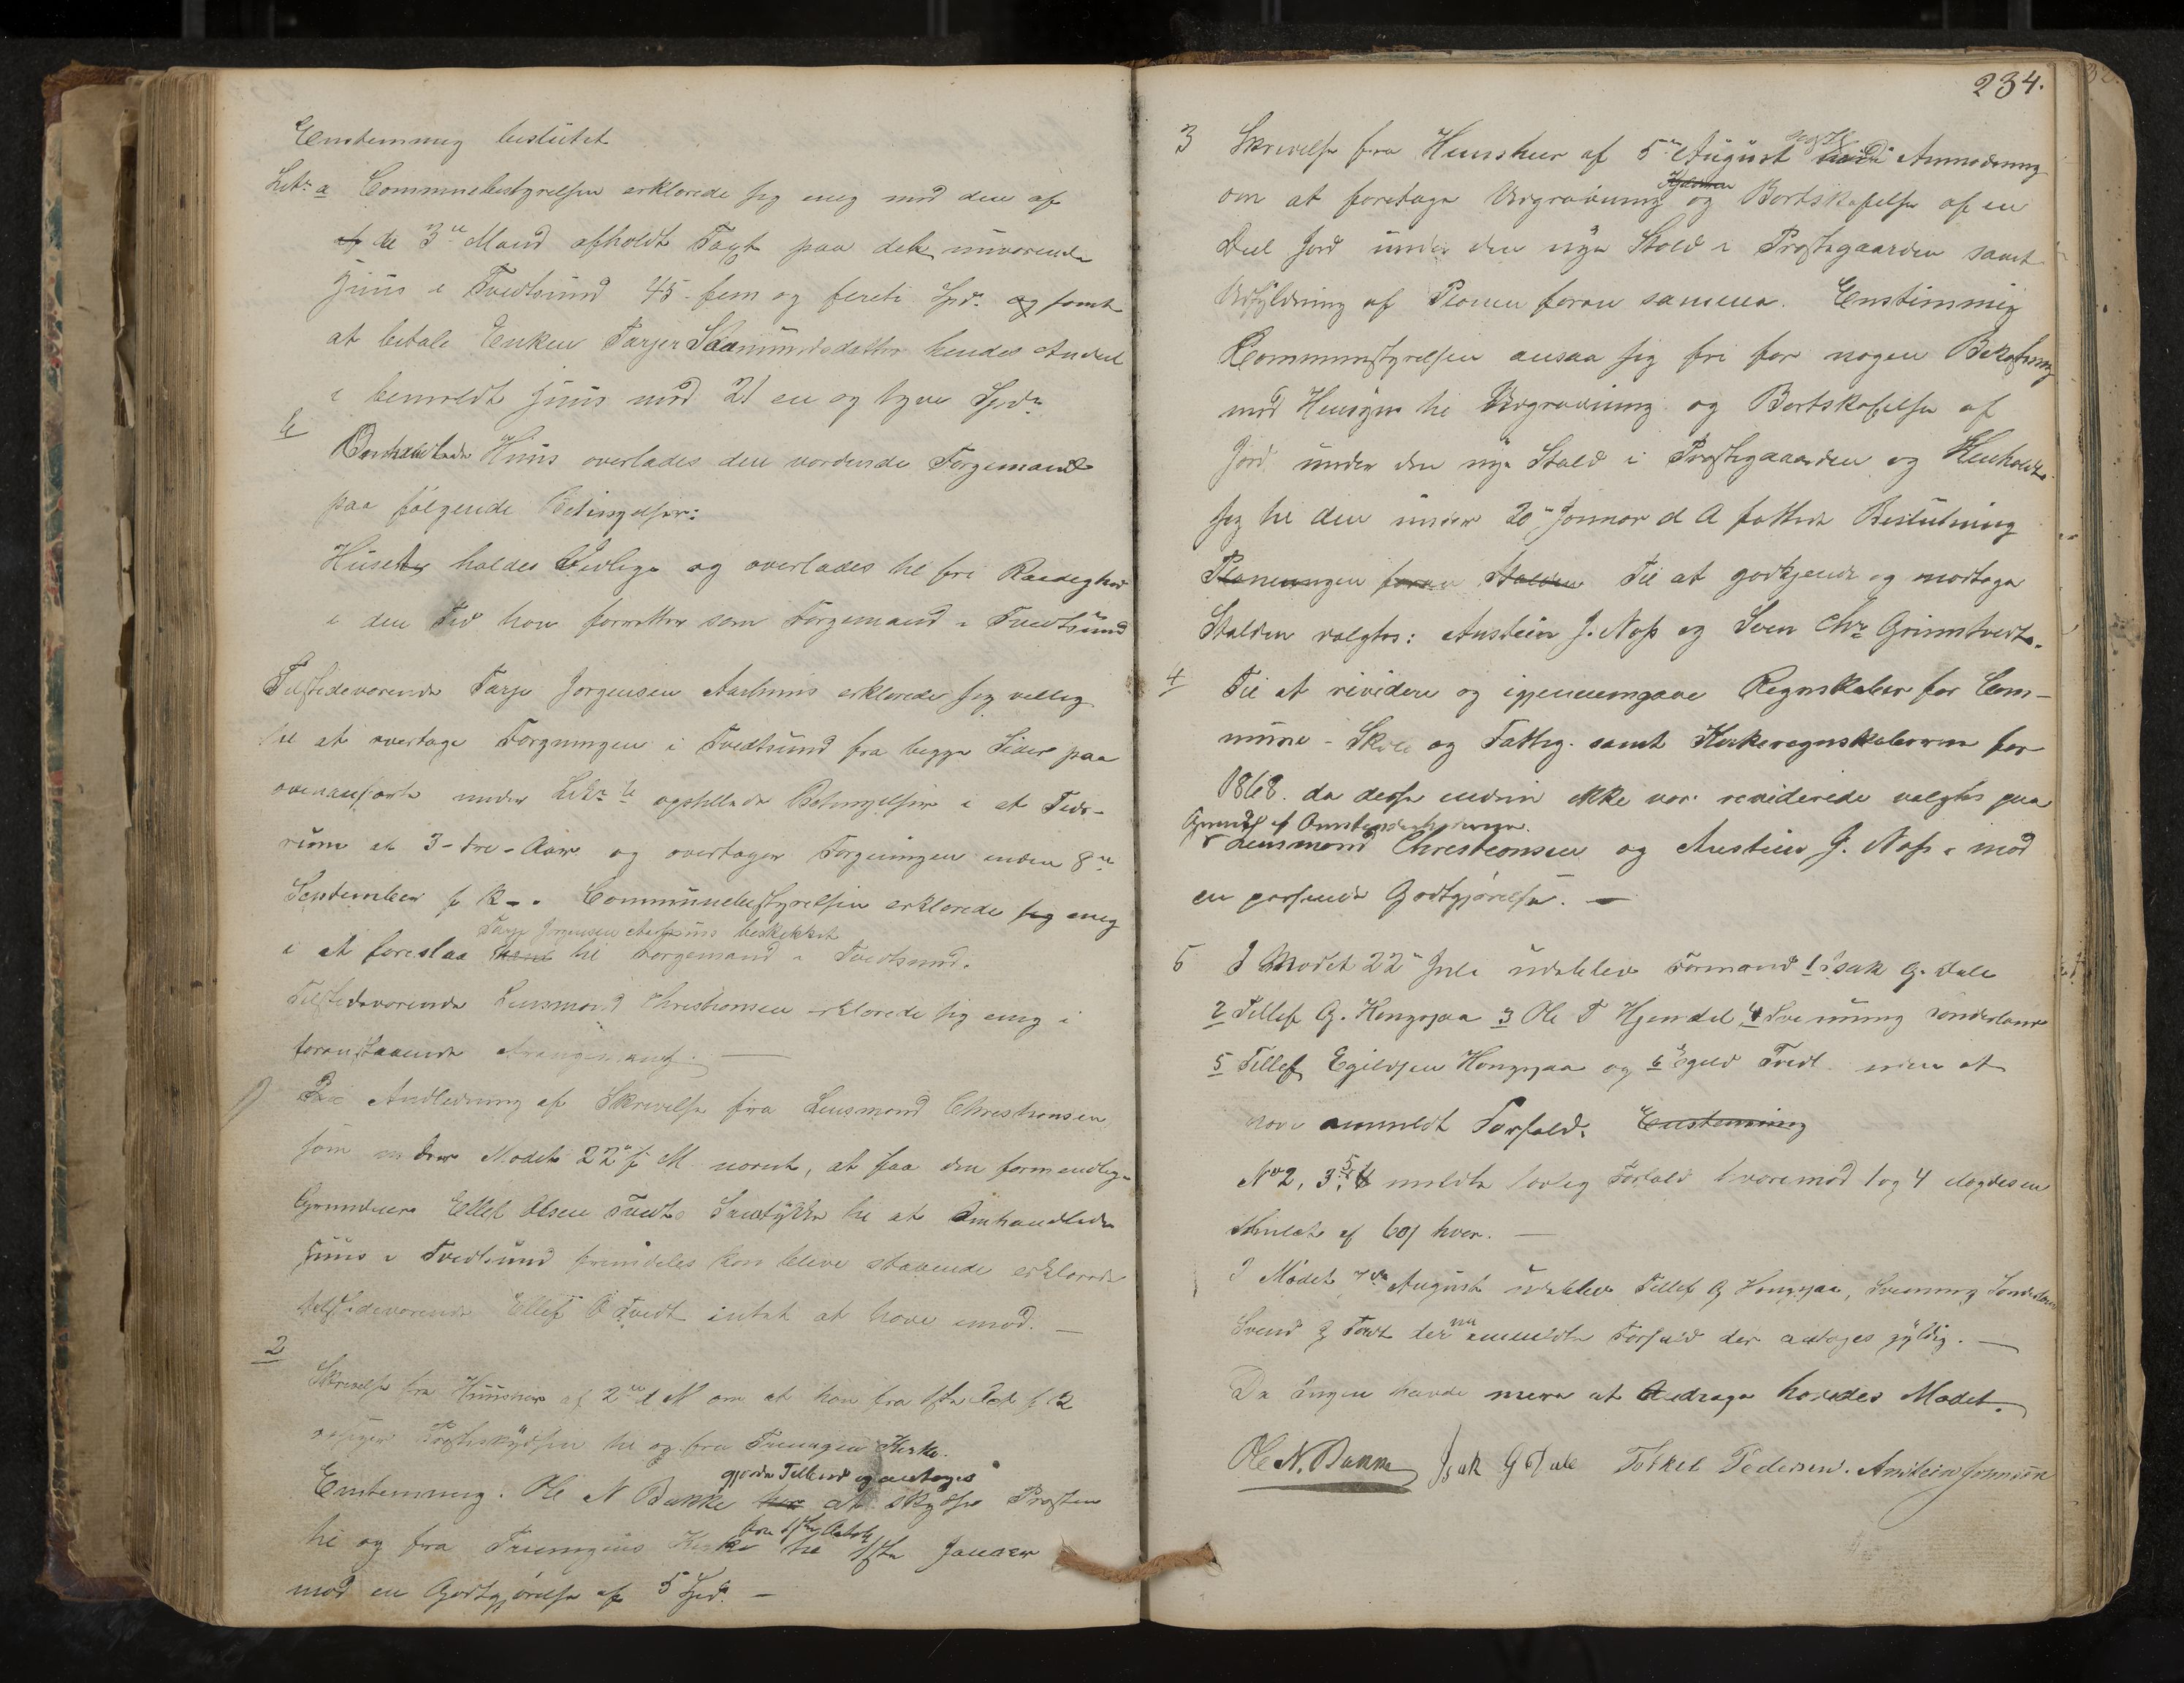 Enstemmig beslutet
Litr a Communebestyrelsen erklærede sig enig med den af
af de 3de Mænd afholdt Taxt paa det nuværende
Huus i Tvedtsund 45 fem og fireti Spd. og samt
at betale Enken Tarjer Saamundsdatter hendes Andeel
i bemeldt Huus med 21 en og tyve Spd.
b
Omhandlede Huus overlades den vordende Færgemand
paa følgende Betingelser:
Huset holdes Vedlige og overlades til fri Raadighed
i den Tid han forretter som Færgemand i Tvedtsund
Tilstedeværende Tarje Jørgensen Aashuus erklærede sig villig
til at overtage Færgningen i Tvedtsund fra begge Sider paa
ovenanførte under Litr b opstillede Betingelser i et Tids-
rum af 3-tre-Aar og overtager Færgningen inden 8de
September f k. Communebestyrelsen erklærede sig enig
Tarje Jørgensen Aashuus beskikket
i at foreslaa ham til Færgemand i Tvedtsund.
Tilstedeværende Lensmand Christiansen erklærede sig enig i
foranstaaende Arangement. —
1) Paa Andledning af Skrivelse fra Lensmand Christiansen
som under Mødet 22de f M nævnt, at faa den formendlige
Grundeier Ellef Olsen Tvedts Samtykke til at omhandlede
Huus i Tvedtsund fremdeles kan blive staaende erklærede
tilstedeværende Ellef O Tvedt intet at have imod. —
2
Skrivelse fra Huusher af 2den d M om at han fra 1ste Oct f k
opsiger Præsteskydsen til og fra Treungen Kirke.
gjorde Tilbud og antages
Enstemmig. Ole N Bakke har at skydse Præsten
fra 1ste Octob
til og fra Treungens Kirke til 1ste Januar
mod en Godtgjørelse af 5 Spd. —
234.
3 Skrivelse fra Huusheer af 5te August Anmodning
om at foretage Udgravning og Bortskafelse af en
Deel Jord under den nye Stald i Præstegaarden samt
Udfyldning af Planen foran samme. Enstimmig
Communestyrelsen ansaa sig fri for nogen Bekostning
med Hensyn til Udgravning og Bortskafelse af
Jord under den nye Stald i Præstegaaarden og Henholdt
sig til den under 20de Januar d A fattede Beslutning
Planeringen foran Stalden Til at godkjende og modtage
Stalden valgtes: Anstein J. Næss og Sven Chr. Grimstvedt.
4 Til at revidere og igjennemgaae Regnskaber for Com-
mune - Skole og Fattig. samt Kirkeregnskaberne for
1868. da disse endnu ikke var reviderede valgtes paa
Grund af Omstændighederne.
Lensmand Christiansen og Anstein J. Næss. mod
en passende Godtgjørelse. —
5 I Mødet 22de Juli udeblev Formænd 1 Isak G. Dale
2 Tellef G. Hougsjaa 3 Ole T Hjendal 4 Svenning Sønderland
5 Tellef Egildsen Hougsjaa og 6 Egild Tvedt uden at
have anmeldt Forfald. Enstemmig
No 2, 3, 5, 6 meldte lovlig Forfald hvorimod 1 og 4 ilagdes en
Mulct af 60 s hver. —
I Mødet 7de August udeblev Tellef G Hougsjaa, Svenning Sønderland
nu
Svend G Tvedt der anmeldte Forfald der antages gyldig. —
Da Ingen havde mere at Andrage hævedes Mødet.
Ole N. Bakke Isak G Dale Torkel Pedersen. Anstein Jonsson